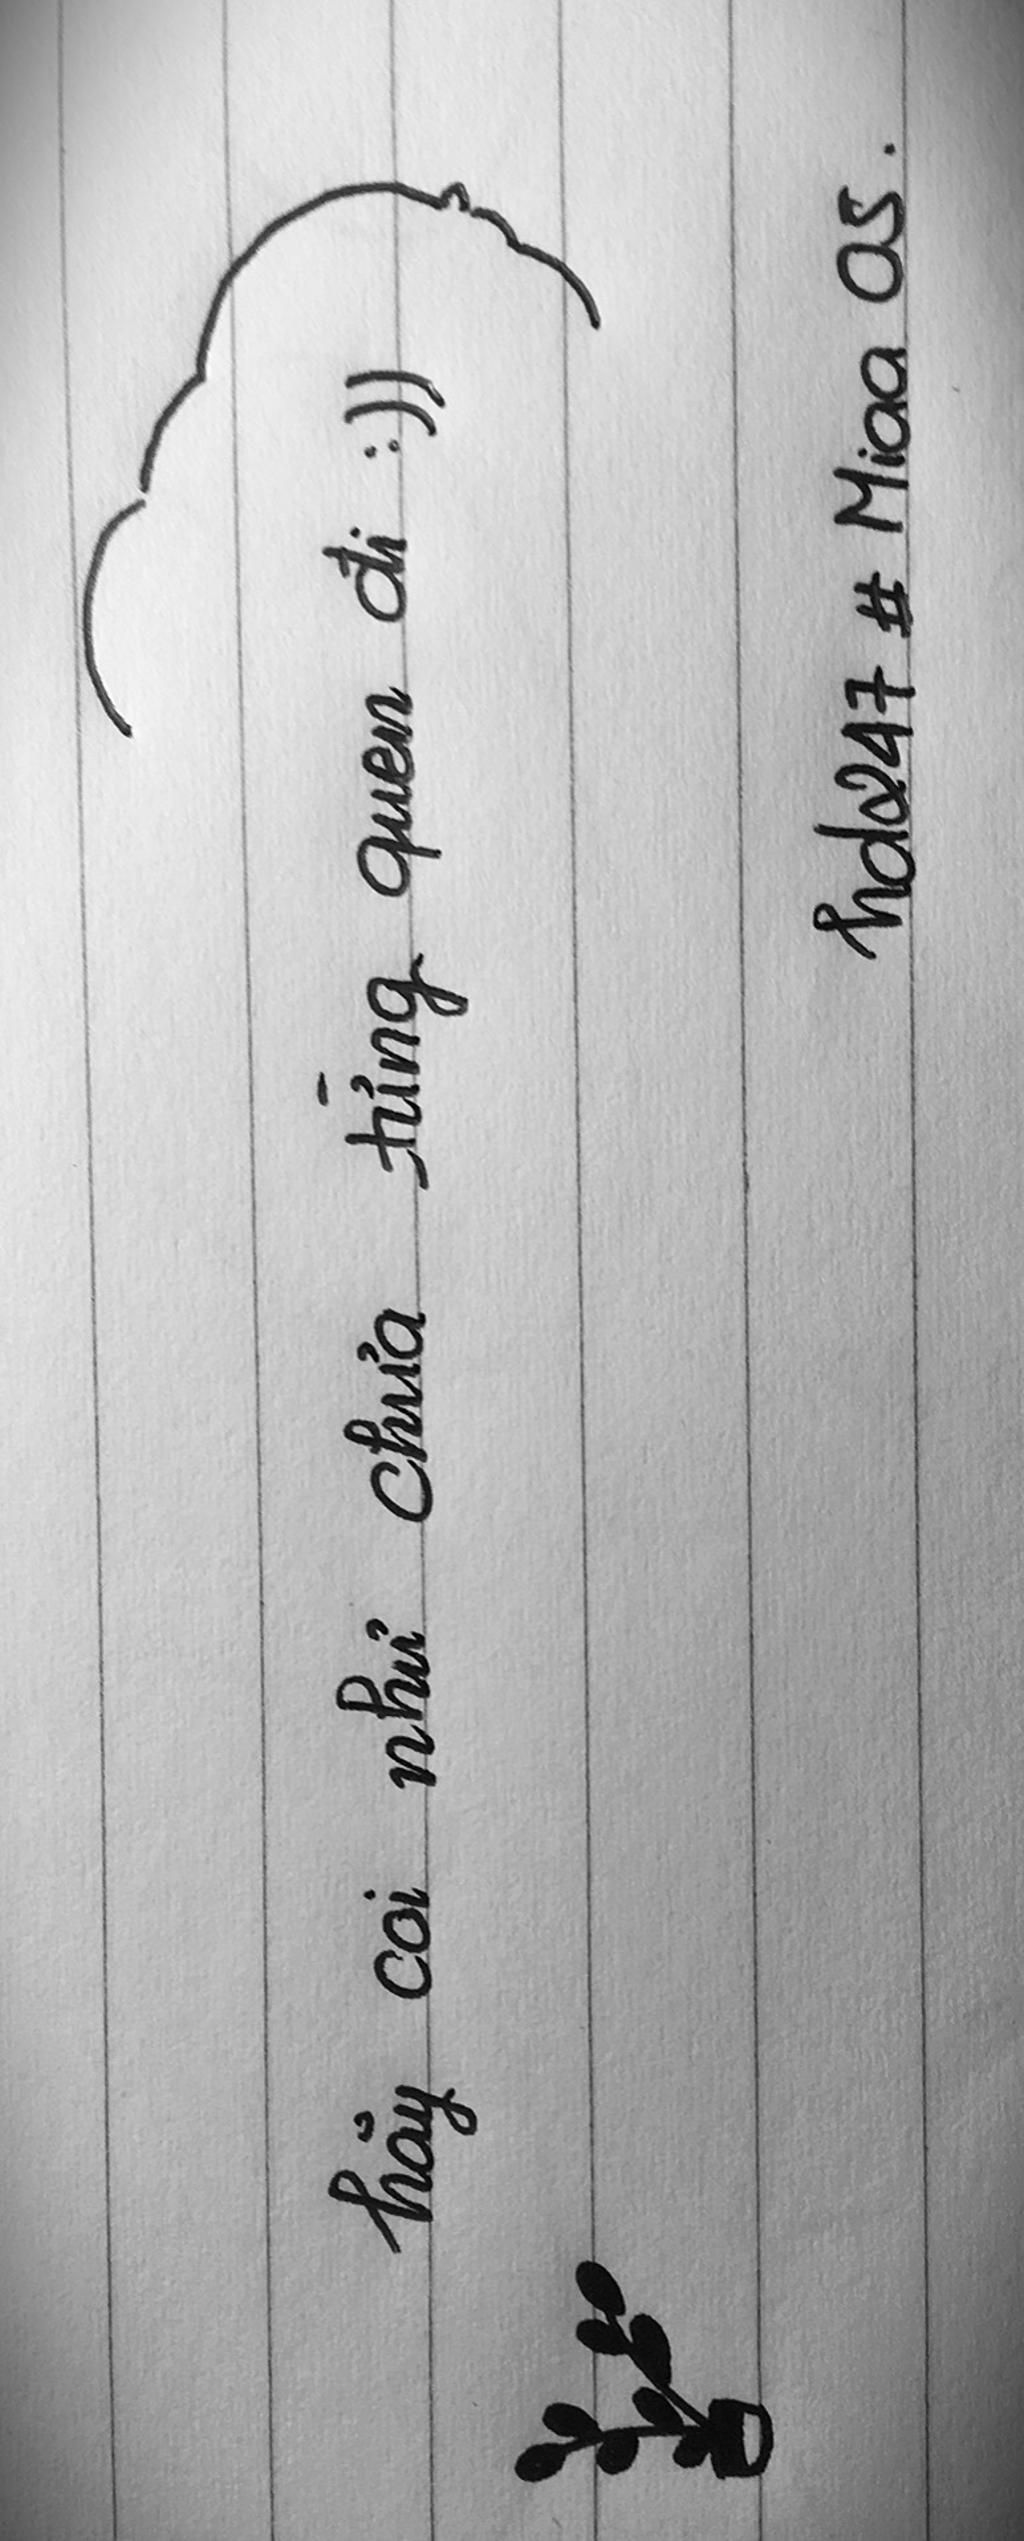 hãy coi như chưa từng quen đi :))
hda247 # Miaa OS.